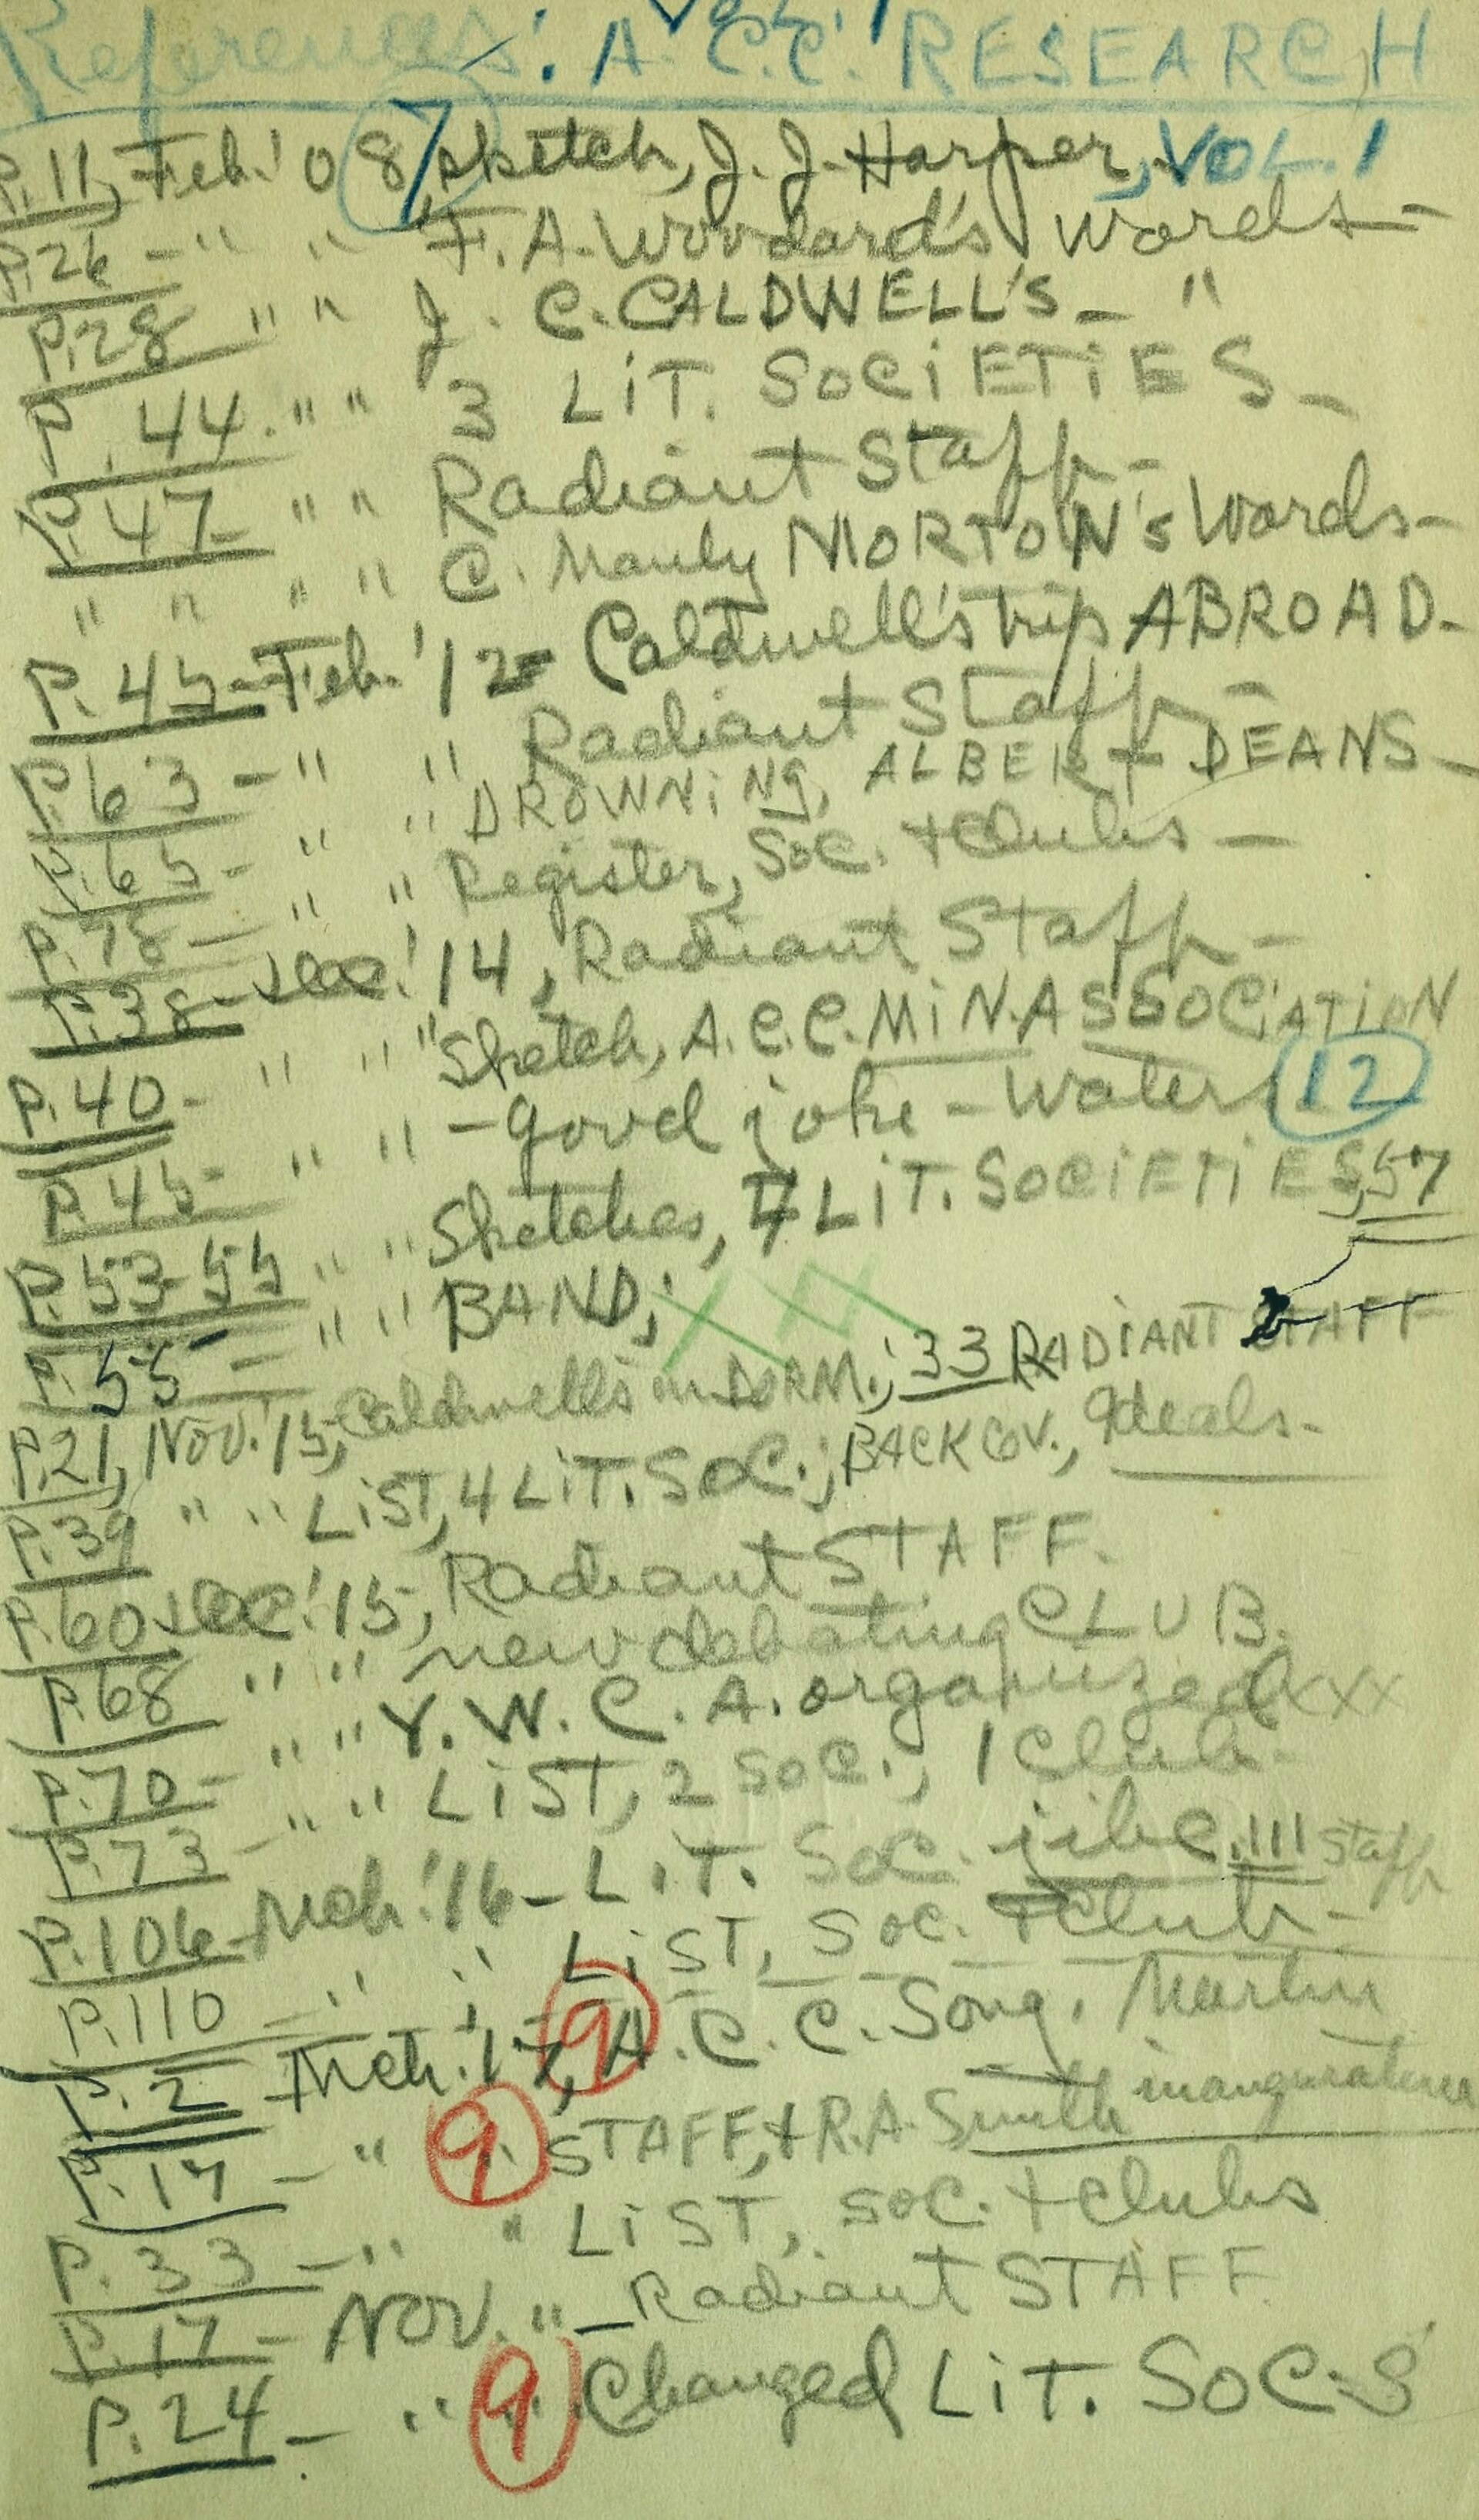 References: A.C.C. RESEARCH
P.11, Feb. '08, sketch, J. J. Harper, VOL. 1
7
P.26 - " " F. A. Woodard's words -
P.28 " " J. C. CALDWELL'S - "
P. 44. " " 3 LIT. SOCIETIES -
P. 47 - " " Radiant Staff -
" " " " C. Manly MORTON's Words -
P. 45 - Feb. '12 - Caldwell's trip ABROAD -
P. 63 - " " Radiant Staff -
P. 65 - " " DROWNING, ALBERT DEANS -
P. 78 - " " Register, Soc. + Clubs -
P. 38 - Dec. '14, Radiant Staff -
P. 40 - " " " Sketch, A.C.C. MIN. ASSOCIATION
P. 45 - " " - good joke - Waters 12
P. 53-55 " " Sketches, 4 LIT. SOCIETIES, 57
P. 55 - " " BAND;
P.21, Nov. '15, Caldwells in DORM.; 33 RADIANT STAFF
P.39 " " LIST, 4 LIT. SOC.; BACK COV., Ideals -
P.60 Dec. '15, Radiant STAFF.
P.68 " " new debating CLUB.
P.70 - " " Y.W.C.A. organized xxx
P.73 - " " LIST, 2 SOC., 1 Club -
P.106 - Mch. '16 - LIT. Soc. jibe, 111 Staff
P.110 - " " LIST, Soc. + Club -
P. 2 - Mch. '17, 9 A.C.C. Song. Martin
P. 17 - " 9 STAFF, + R.A. Smith inauguration
P. 33 - " " LIST, SOC. + Clubs
P. 17 - NOV. " - Radiant STAFF.
P. 24 - " 9 Changed LIT. SOC-S